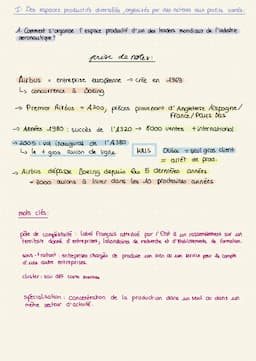 I. Des espaces productifs diversifiés, organisés par des acteurs aux poids variés
A. Comment s'organise l'espace productif d'un des leaders mondiaux de l'industrie
aéronautique?
prise de notes:
Airbus = entreprise européenne → crée en 1969
↳ concurrence à Boeing
→ Premier Airbus = A300, pièces provenant d'Angleterre/Espagne/
France/Pays Bas
→ Années 1980 : succès de l'A320 → 8000 ventes + international
→ 2005 : vol inaugural de l'A380
↳ le + gros avion de ligne
MAIS
Dubai = seul gros client
= arrêt de prod.
→ Airbus dépasse Boeing depuis les 5 dernières années
= 7000 avions à livrer dans les 10 prochaines années
mots clés:
pôle de compétitivité : label français attribué par l'État à un rassemblement sur un
territoire donné d'entreprises, laboratoires de recherche et d'établissements de formation.
sous-traitant : entreprises chargées de produire un bien ou un service pour le compte
d'une autre entreprises.
cluster : voir déf carte mentale
spécialisation : concentration de la production dans un seul ou dans un
même secteur d'activité.